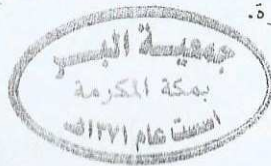 ة.
جمعية البـــر
بمكة المكرمة
اسست عام ١٣٧١هـ